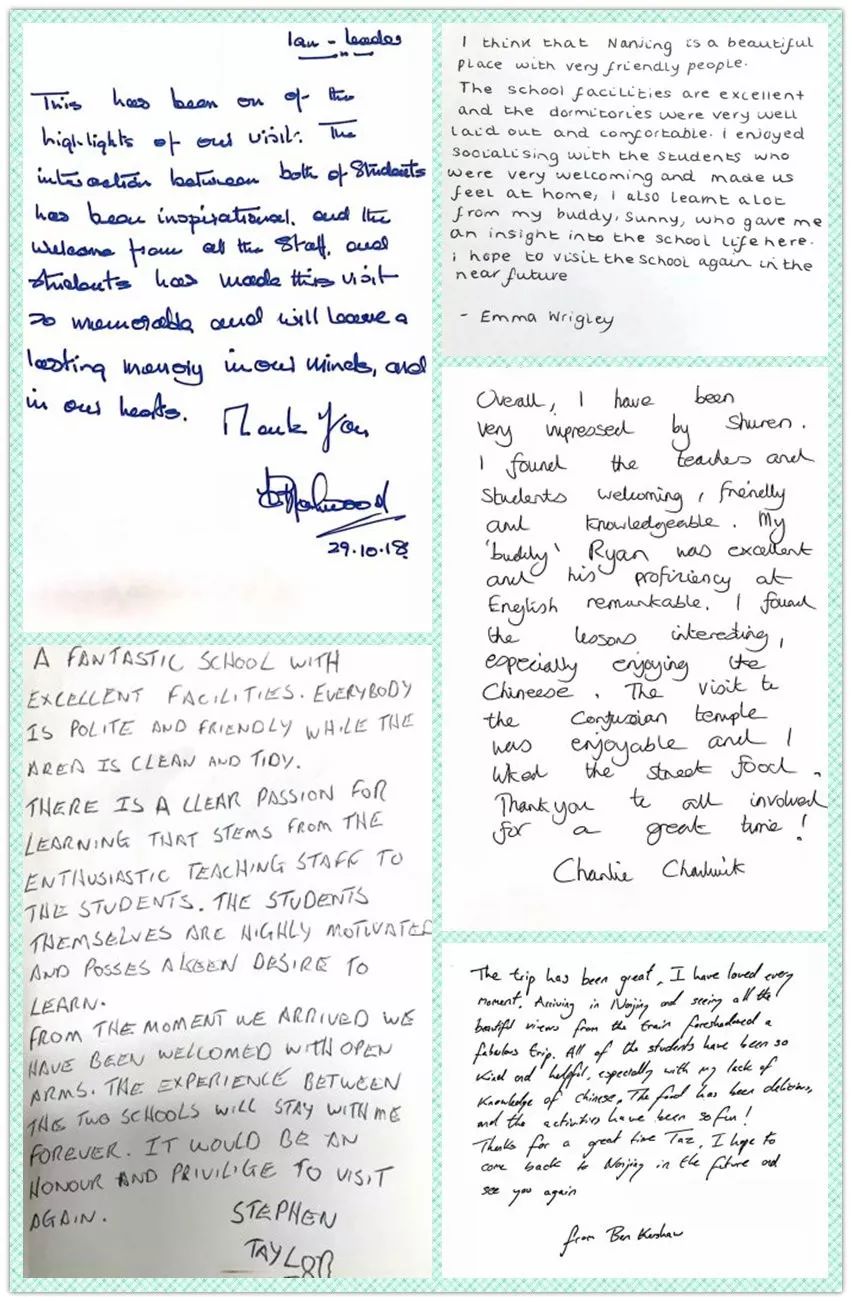 Ian - leader
This has been on of the
highlights of our visit. The
interaction between both of Students
has been inspirational. and the
welcome from all the Staff. and
students has made this visit
so memorable and will leave a
lasting memory in our minds, and
in our hearts.
Thank You
29.10.18
A FANTASTIC SCHOOL WITH
EXCELLENT FACILITIES. EVERYBODY
IS POLITE AND FRIENDLY WHILE THE
AREA IS CLEAN AND TIDY.
THERE IS A CLEAR PASSION FOR
LEARNING THAT STEMS FROM THE
ENTHUSIASTIC TEACHING STAFF TO
THE STUDENTS. THE STUDENTS
THEMSELVES ARE HIGHLY MOTIVATED
AND POSSES A KEEN DESIRE TO
LEARN.
FROM THE MOMENT WE ARRIVED WE
HAVE BEEN WELCOMED WITH OPEN
ARMS. THE EXPERIENCE BETWEEN
THE TWO SCHOOLS WILL STAY WITH ME
FOREVER. IT WOULD BE AN
HONOUR AND PRIVILIGE TO VISIT
AGAIN.
STEPHEN
TAYLOR
I think that Nanjing is a beautiful
place with very friendly people.
The school facilities are excellent
and the dormitories were very well
laid out and comfortable. I enjoyed
socialising with the students who
were very welcoming and made us
feel at home, I also learnt a lot
from my buddy, Sunny, who gave me
an insight into the school life here.
i hope to visit the school again in the
near future
- Emma Wrigley
Overall, I have been
very impressed by Shuren.
I found the teachers and
students welcoming, friendly
and knowledgeable. My
'buddy' Ryan was excellent
and his proficiency at
English remarkable. I found
the lessons interesting,
especially enjoying the
Chineese. The visit to
the Confusian temple
was enjoyable and I
liked the street food.
Thank you to all involved
for a great time!
Charlie Chadwick
The trip has been great, I have loved every
moment. Arriving in Nanjing and seeing all the
beautiful views from the train foreshadowed a
fabulous trip. All of the students have been so
kind and helpful, especially with my lack of
knowledge of chinese. The food has been delicious,
and the activities have been so fun!
Thanks for a great time Taz, I hope to
come back to Nanjing in the future and
see you again
from Ben Kershaw